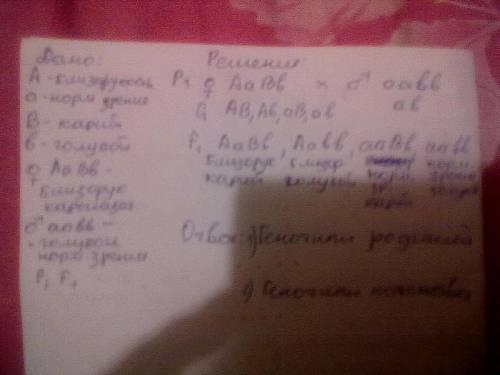 Дано:
А - близорукость
а - норм зрение
В - карий
в - голубой
♀ АаВв -
близорук
кареглазая
♂ аавв -
голубой
норм. зрение
P, F₁
Решение:
P₁ ♀ АаВв × ♂ аавв
G₁ АВ, Ав, аВ, ав ав
F₁ АаВв, Аавв, ааВв, аавв
близорук близор норм.
карий голубой норм. зрение
зр.
карий
Ответ: 1) Генотипы родителей
2) Генотипы потомства